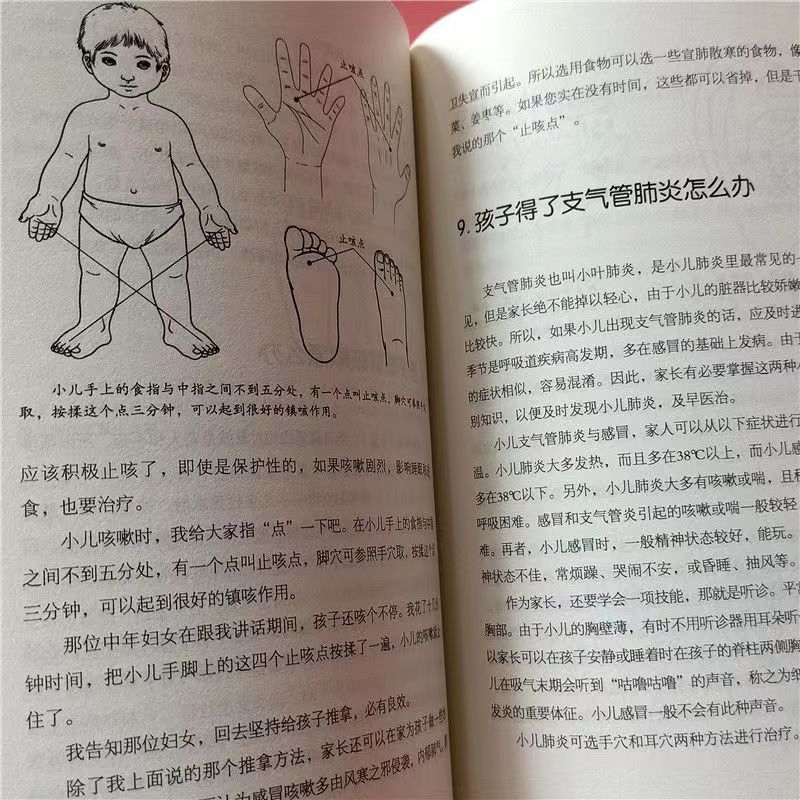 止咳点
止咳点
小儿手上的食指与中指之间不到五分处，有一个点叫止咳点，脚穴可参照手穴
取，按揉这个点三分钟，可以起到很好的镇咳作用。
应该积极止咳了，即使是保护性的，如果咳嗽剧烈，影响睡眠和进
食，也要治疗。
小儿咳嗽时，我给大家指“点”一下吧。在小儿手上的食指与中指
之间不到五分处，有一个点叫止咳点，脚穴可参照手穴取，按揉这个点
三分钟，可以起到很好的镇咳作用。
那位中年妇女在跟我讲话期间，孩子还咳个不停。我花了十几分
钟时间，把小儿手脚上的这四个止咳点按揉了一遍，小儿的咳嗽就止
住了。
我告知那位妇女，回去坚持给孩子推拿，必有良效。
除了我上面说的那个推拿方法，家长还可以在家为孩子做一些
认为感冒咳嗽多由风寒之邪侵袭，内郁肺气，肺
卫失宣而引起。所以选用食物可以选一些宣肺散寒的食物，像
菜、姜枣等。如果您实在没有时间，这些都可以省掉，但是千
我说的那个“止咳点”。
9. 孩子得了支气管肺炎怎么办
支气管肺炎也叫小叶肺炎，是小儿肺炎里最常见的一
见，但是家长绝不能掉以轻心，由于小儿的脏器比较娇嫩
比较快。所以，如果小儿出现支气管肺炎的话，应及时进
季节是呼吸道疾病高发期，多在感冒的基础上发病。由于
的症状相似，容易混淆。因此，家长有必要掌握这两种小
别知识，以便及时发现小儿肺炎，及早医治。
小儿支气管肺炎与感冒，家人可以从以下症状进行
温。小儿肺炎大多发热，而且多在38℃以上，而小儿感
多在38℃以下。另外，小儿肺炎大多有咳嗽或喘，且程
呼吸困难。感冒和支气管炎引起的咳嗽或喘一般较轻
难。再者，小儿感冒时，一般精神状态较好，能玩。
神状态不佳，常烦躁、哭闹不安，或昏睡、抽风等。
作为家长，还要学会一项技能，那就是听诊。平
胸部。由于小儿的胸壁薄，有时不用听诊器用耳朵听
以家长可以在孩子安静或睡着时在孩子的脊柱两侧胸
儿在吸气末期会听到“咕噜咕噜”的声音，称之为细
发炎的重要体征。小儿感冒一般不会有此种声音。
小儿肺炎可选手穴和耳穴两种方法进行治疗。